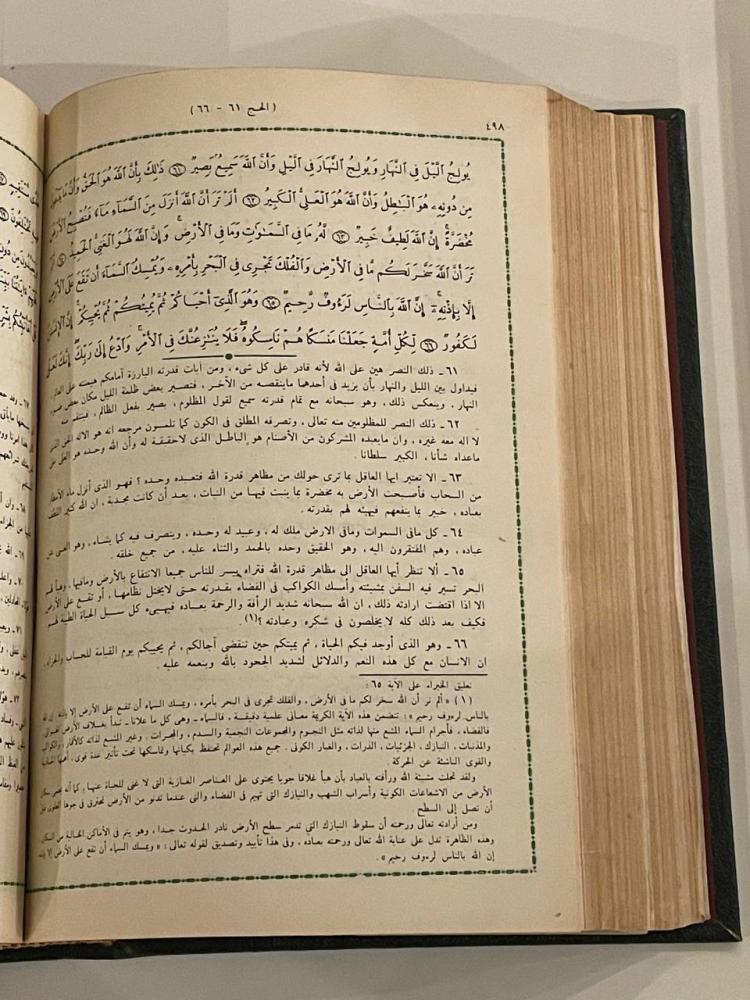 (الحج ٦١ - ٦٦)
٤٩٨
يُولِجُ الَّيْلَ فِي النَّهَارِ وَيُولِجُ النَّهَارَ فِي الَّيْلِ وَأَنَّ اللَّهَ سَمِيعٌ بَصِيرٌ ٦١ ذَٰلِكَ بِأَنَّ اللَّهَ هُوَ الْحَقُّ وَأَنَّ مَا
مِن دُونِهِ هُوَ الْبَاطِلُ وَأَنَّ اللَّهَ هُوَ الْعَلِيُّ الْكَبِيرُ ٦٢ أَلَمْ تَرَ أَنَّ اللَّهَ أَنزَلَ مِنَ السَّمَاءِ مَاءً فَتُصْبِحُ الْأَرْضُ
مُخْضَرَّةً إِنَّ اللَّهَ لَطِيفٌ خَبِيرٌ ٦٣ لَّهُ مَا فِي السَّمَٰوَٰتِ وَمَا فِي الْأَرْضِ وَإِنَّ اللَّهَ لَهُوَ الْغَنِيُّ الْحَمِيدُ ٦٤
تَرَ أَنَّ اللَّهَ سَخَّرَ لَكُم مَّا فِي الْأَرْضِ وَالْفُلْكَ تَجْرِي فِي الْبَحْرِ بِأَمْرِهِ وَيُمْسِكُ السَّمَاءَ أَن تَقَعَ عَلَى الْأَرْضِ
إِلَّا بِإِذْنِهِ إِنَّ اللَّهَ بِالنَّاسِ لَرَءُوفٌ رَّحِيمٌ ٦٥ وَهُوَ الَّذِي أَحْيَاكُمْ ثُمَّ يُمِيتُكُمْ ثُمَّ يُحْيِيكُمْ إِنَّ الْإِنسَٰنَ
لَكَفُورٌ ٦٦ لِّكُلِّ أُمَّةٍ جَعَلْنَا مَنسَكًا هُمْ نَاسِكُوهُ فَلَا يُنَٰزِعُنَّكَ فِي الْأَمْرِ وَادْعُ إِلَىٰ رَبِّكَ إِنَّكَ لَعَلَىٰ
٦١ - ذلك النصر هين على الله لأنه قادر على كل شىء، ومن آيات قدرته البارزة أمامكم هيمنته على العالم
فيداول بين الليل والنهار بأن يزيد فى أحدهما ماينقصه من الآخر، فتصير بعض ظلمة الليل مكان بعض ضوء
النهار، وينعكس ذلك، وهو سبحانه مع تمام قدرته سميع لقول المظلوم، بصير بفعل الظالم، فينتقم منه
٦٢ - ذلك النصر للمظلومين منه تعالى، وتصرفه المطلق فى الكون كما تلمسون مرجعه انه هو الاله الحق الذى
لا اله معه غيره، وان مايعبده المشركون من الأصنام هو الباطل الذى لاحقيقة له وأن الله وحده هو العلى على
ماعداه شأنا، الكبير سلطانا.
٦٣ - الا تعتبر ايها العاقل بما ترى حولك من مظاهر قدرة الله فتعبده وحده؟ فهو الذى أنزل ماء الأمطار
من السحاب فأصبحت الأرض به مخضرة بما ينبت فيها من النبات، بعد أن كانت مجدبة، ان الله كثير اللطف
بعباده، خبير بما ينفعهم فيهيئه لهم بقدرته.
٦٤ - كل مافى السموات ومافى الارض ملك له، وعبيد له وحده، ويتصرف فيه كما يشاء، وهو الغنى عن
عباده، وهم المفتقرون اليه، وهو الحقيق وحده بالحمد والثناء عليه، من جميع خلقه.
٦٥ - ألا تنظر أيها العاقل الى مظاهر قدرة الله فتراه ييسر للناس جميعا الانتفاع بالأرض ومافيها، وهيأ لهم
البحر تسير فيه السفن بمشيئته وأمسك الكواكب فى الفضاء بقدرته حتى لايختل نظامها، أو تقع على الأرض
الا اذا اقتضت ارادته ذلك، ان الله سبحانه شديد الرأفة والرحمة بعباده فيهيىء كل سبل الحياة الطيبة لهم
فكيف بعد ذلك كله لا يخلصون فى شكره وعبادته؟ (١).
٦٦ - وهو الذى أوجد فيكم الحياة، ثم يميتكم حين تنقضى آجالكم، ثم يحييكم يوم القيامة للحساب والجزاء
ان الانسان مع كل هذه النعم والدلائل لشديد الجحود بالله وبنعمه عليه.
تعليق الخبراء على الآية ٦٥:
(١) «ألم تر أن الله سخر لكم ما فى الأرض، والفلك تجرى فى البحر بأمره، ويمسك السماء أن تقع على الأرض إلا بإذنه إن الله
بالناس لرءوف رحيم»: تتضمن هذه الآية الكريمة معانى علمية دقيقة، فالسماء - وهى كل ما علانا - تبدأ بغلاف الأرض الهوائى
فالفضاء، فأجرام السماء المشع منها لذاته مثل النجوم والمجموعات النجمية والسدم، والمجرات. وغير المشع لذاته كالأقمار، والكواكب
والمذنبات، النيازك، الجزئيات، الذرات، والغبار الكونى. جميع هذه العوالم تحتفظ بكيانها وتماسكها تحت تأثير عدة قوى، أهمها الجاذبية
والقوى الناشئة عن الحركة.
ولقد تجلت مشيئة الله ورأفته بالعباد بأن هيأ غلافا جويا يحتوى على العناصر الغازية التى لا غنى للحياة عنها، كما أنه يحمى سكان
الأرض من الاشعاعات الكونية وأسراب الشهب والنيازك التى تهيم فى الفضاء والتى عندما تدنو من الأرض تحترق فى جوها العلوى قبل
أن تصل إلى السطح
ومن أرادته تعالى ورحمته أن سقوط النيازك التى تدمر سطح الأرض نادر الحدوث جدا، وهو يتم فى الأماكن الخالية من السكان
وهذه الظاهرة تدل على عناية الله تعالى ورحمته بعباده، وفى هذا تأييد وتصديق لقوله تعالى: «ويمسك السماء أن تقع على الأرض إلا بإذنه
إن الله بالناس لرءوف رحيم».